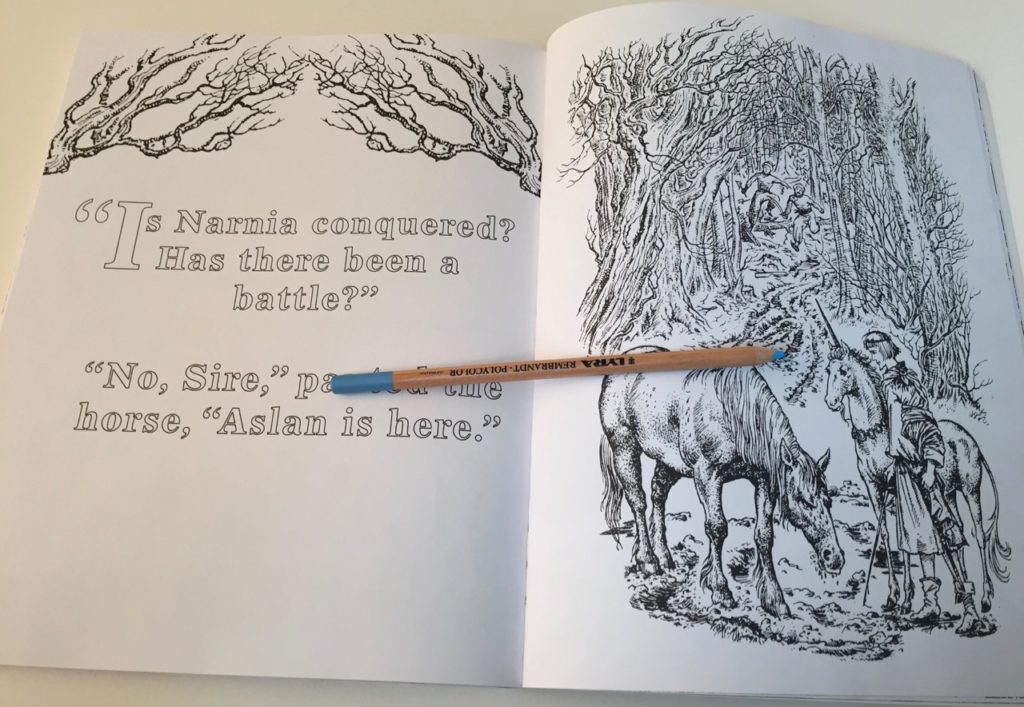 “Is Narnia conquered?
Has there been a
battle?”
“No, Sire,” panted the
horse, “Aslan is here.”
LYRA REMBRANDT-POLYCOLOR